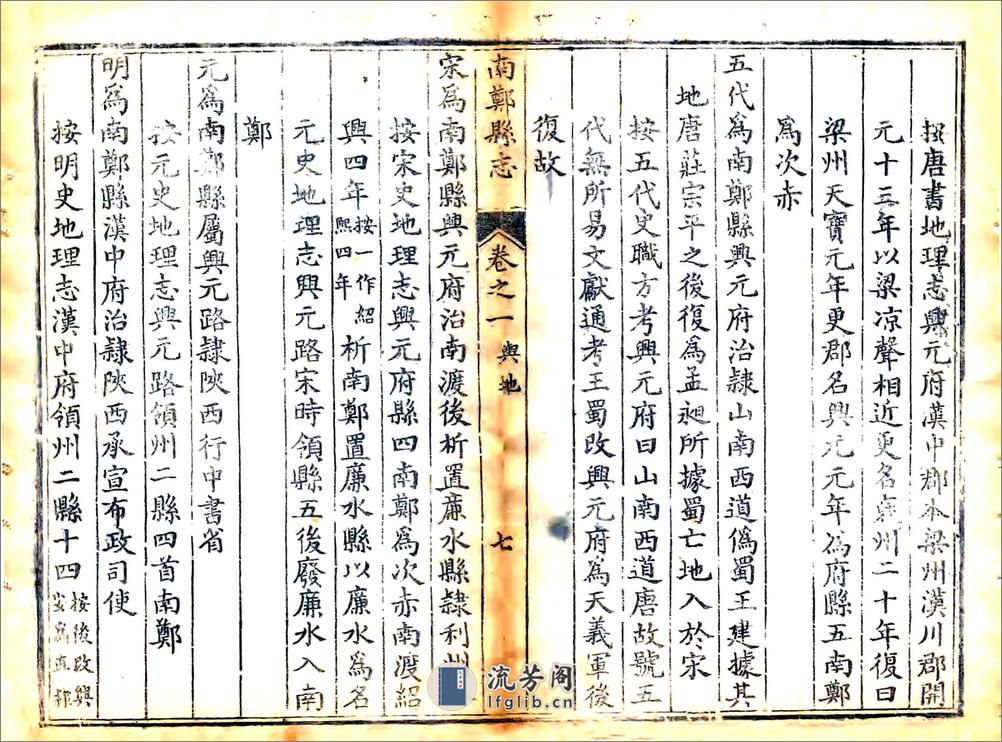 按唐書地理志興元府漢中郡本梁州漢川郡開
元十三年以梁凉聲相近更名襃州二十年復曰
梁州天寶元年更郡名興元元年為府縣五南鄭
爲次赤
五代爲南鄭縣興元府治隸山南西道僞蜀王建據其
地唐莊宗平之後復爲孟昶所據蜀亡地入於宋
按五代史職方考興元府曰山南西道唐故號五
代無所易文獻通考王蜀改興元府為天義軍後
復故
南鄭縣志 卷之一 輿地 七
宋爲南鄭縣興元府治南渡後析置廉水縣隸利州
按宋史地理志興元府縣四南鄭爲次赤南渡紹
興四年按一作紹熙四年析南鄭置廉水縣以廉水爲名
元史地理志興元路宋時領縣五後廢廉水入南
鄭
元爲南鄭縣屬興元路隸陝西行中書省
按元史地理志興元路領州二縣四首南鄭
明爲南鄭縣漢中府治隸陝西承宣布政司使
按明史地理志漢中府領州二縣十四按後改興安爲直隸
流芳阁
lfglib.cn